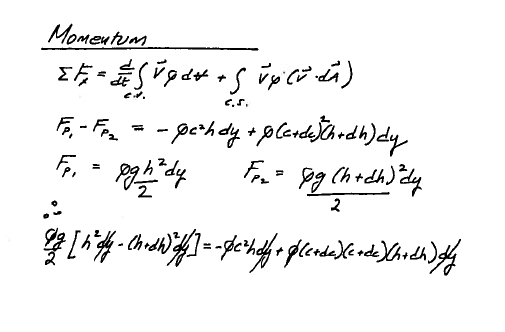 Momentum
ΣFₓ = d/dt ∫c.v. V⃗ρd∀ + ∫c.s. V⃗ρ(V⃗·dA⃗)
Fp₁ - Fp₂ = -ρc²h dy + ρ(c+dc)²(h+dh)dy
Fp₁ = ρgh²dy/2    Fp₂ = ρg(h+dh)²dy/2
∴
ρg/2 [h²dy - (h+dh)²dy] = -ρc²hdy + ρ(c+dc)(c+dc)(h+dh)dy